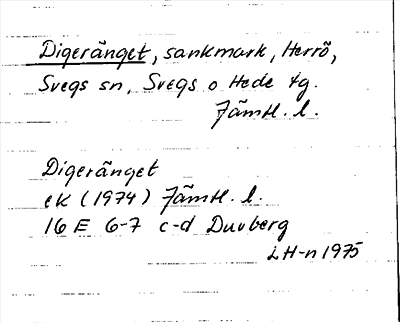 Digeränget, sankmark, Herrö,
Svegs sn, Svegs o Hede tg.
Jämtl. l.
Digeränget
ek (1974) Jämtl. l.
16 E 6-7 c-d Duvberg
LH-n 1975